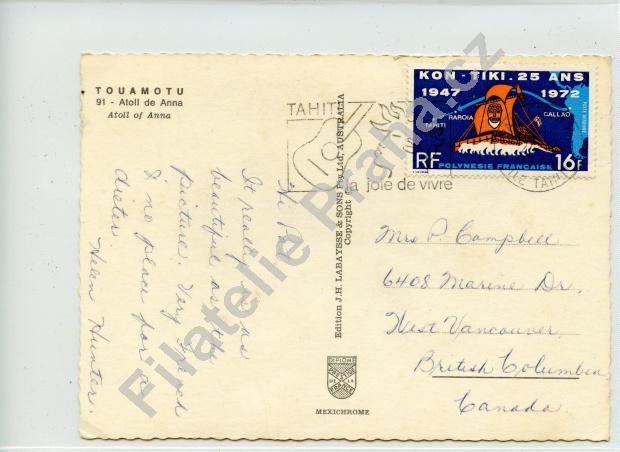 TOUAMOTU
91 - Atoll de Anna
Atoll of Anna
TAHITI
La joie de vivre
KON-TIKI. 25 ANS
1947 1972
TAHITI
RAROIA
CALLAO
RF
16F
POLYNESIE FRANCAISE
Hi Pat
It really is as
beautiful as the
picture. Very French
& no place for a
dieter
Helen Hunter.
Edition J.H. LABAYSSE & SONS Pty Ltd. AUSTRALIA
Copyright
DIPLOME
PRESTIGE
DE LA
FRANCE
MEXICHROME
Mrs P. Campbell
6408 Marine Dr.
West Vancouver
British Columbia
Canada.
Filatelie Praha.cz